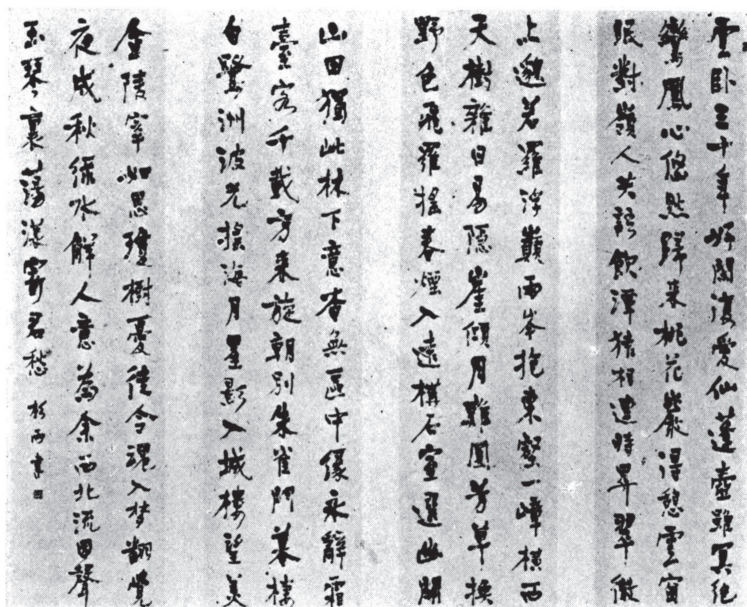 雲卧三十年好閑復愛仙蓬壺雖冥絕
鸞鳳心悠然歸来桃花巖得憩雲窗
眠對嶺人共語飲潭猿相連時昇翠微
上邈若羅浮巔兩岑抱東壑一嶂橫西
天樹雜日易隱崖傾月難圓芳草換
野色飛蘿搖春煙入遠構石室選幽開
山田獨此林下意杳無區中緣永辭霜
臺客千載方来旋朝別朱雀門暮棲
白鷺洲波光搖海月星影入城樓望美
金陵宰如思瓊樹憂徒令魂入夢翻覺
夜成秋綠水解人意為余西北流因聲
玉琴裏蕩漾寄君愁 杉雨書